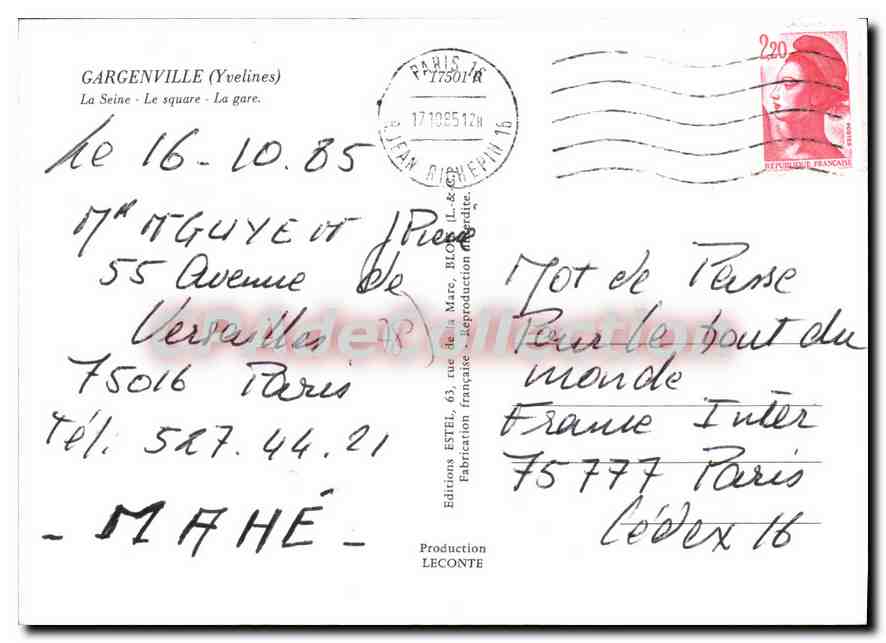 GARGENVILLE (Yvelines)
La Seine - Le square - La gare.
Le 16-10.85
Mr NGUYEN J Pierre
55 Avenue de
Versailles
75016 Paris
Tél. 527.44.21
- MAHÉ -
PARIS 16
17501 R
17 10 85 12H
R. JEAN RICHEPIN 16
Editions ESTEL, 63, rue de la Mare, BLOIS (L.-&-C.)
Fabrication française - Reproduction interdite.
Production
LECONTE
2,20
POSTES
REPUBLIQUE FRANÇAISE
Mot de Passe
Pour le bout du
monde
France Inter
75777 Paris
Cédex 16
CPArteCollection
78